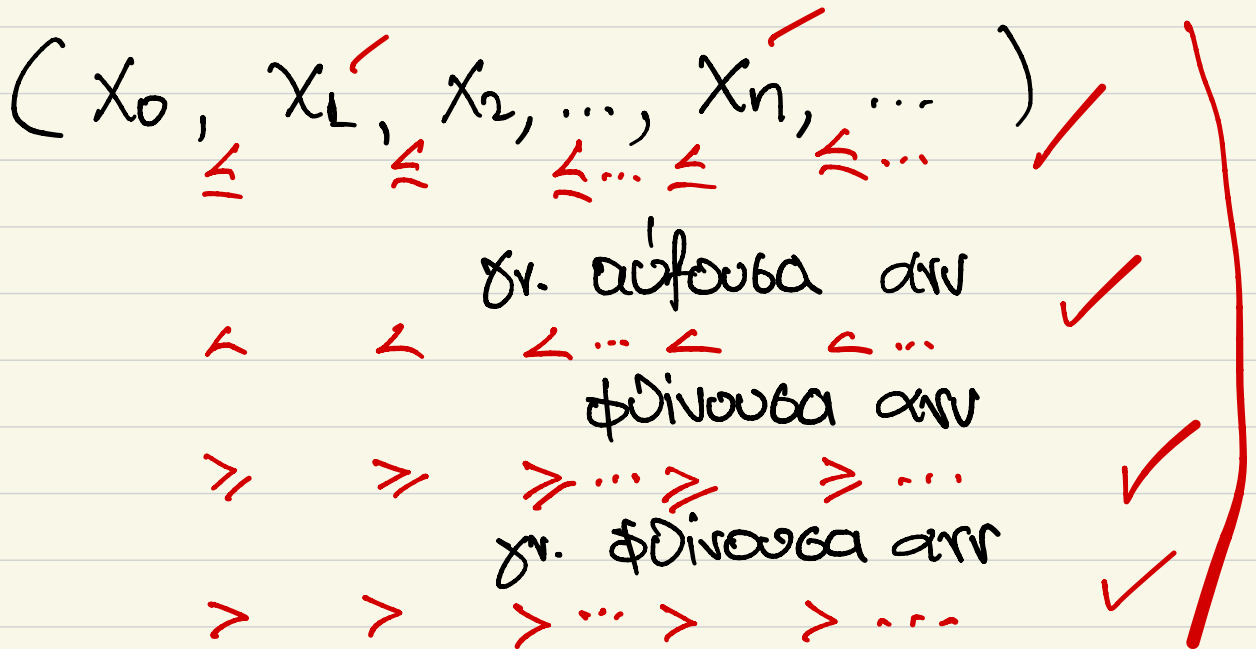 (x₀, x₁, x₂, ..., xₙ, ...)
≤ ≤ ≤ ... ≤ ≤ ...
γν. αύξουσα ανν
< < < ... < < ...
φθίνουσα ανν
≥ ≥ ≥ ... ≥ ≥ ...
γν. φθίνουσα ανν
> > > ... > > ...